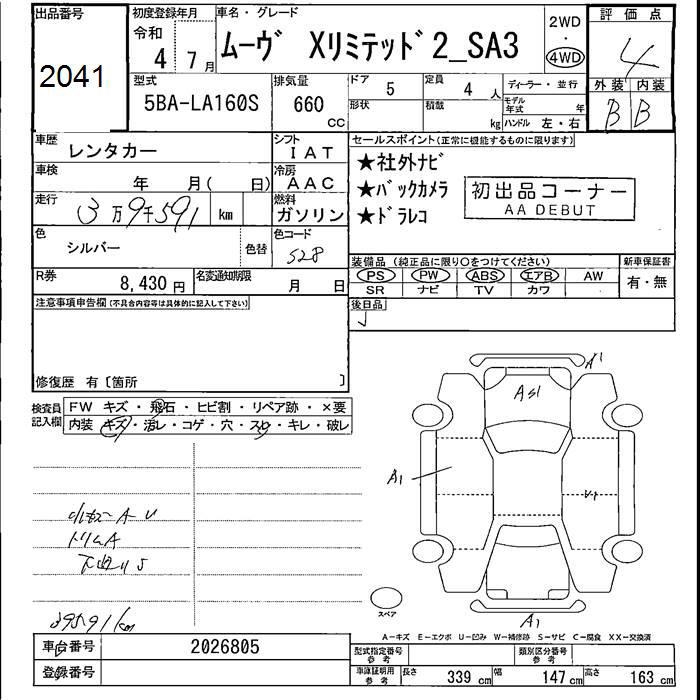 出品番号
2041
初度登録年月
令和
4 7月
車名・グレード
ムーヴ Xリミテッド2_SA3
2WD
・
4WD
評価点
4
外装 内装
B B
型式
5BA-LA160S
排気量
660
CC
ドア 5
定員 4 人
形状
積載 kg
ディーラー・並行
モデル年式 年
ハンドル 左・右
車歴
レンタカー
シフト
IAT
車検
年 月( 日)
冷房
AAC
走行
3万9千591 km
燃料
ガソリン
色
シルバー
色替
色コード
S28
R券
8,430 円
名変通知期限
月 日
セールスポイント(正常に機能するものに限ります)
★社外ナビ
★バックカメラ
★ドラレコ
初出品コーナー
AA DEBUT
装備品 (純正品に限り○をつけてください)
PS PW ABS エアB AW
SR ナビ TV カワ
新車保証書
有・無
後日品
注意事項申告欄(不具合内容等は具体的に記入して下さい)
修復歴 有〔箇所 〕
検査員記入欄
FW キズ・飛石・ヒビ割・リペア跡・×要
内装 キズ・汚レ・コゲ・穴・スレ・キレ・破レ
A1
AS1
A1
トリムA
39591km
スペア
A1
A-キズ E-エクボ U-凹み W-補修跡 S-サビ C-腐食 XX-交換済
車台番号
2026805
登録番号
型式指定番号
参考
類別区分番号
参考
車庫証明用
参考
長さ 339 cm
幅 147 cm
高さ 163 cm